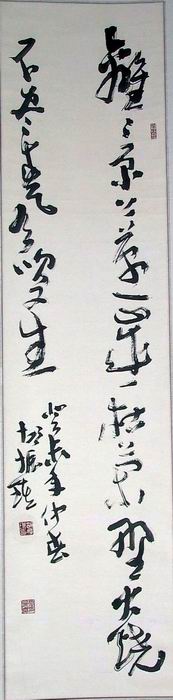 離〻原上草一歲一枯榮野火燒
不盡春風吹又生
癸未年仲春